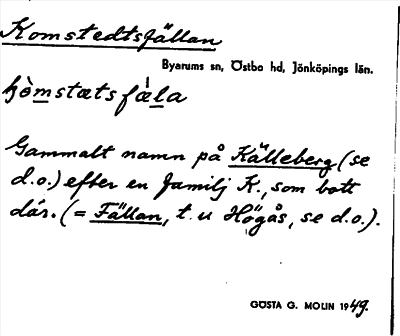 Komstedtsfällan
Byarums sn, Östbo hd, Jönköpings län.
Gammalt namn på Källeberg (se
d.o.) efter en familj K., som bott
där. (= Fällan, t. u Högås, se d.o.).
GÖSTA G. MOLIN 1949.